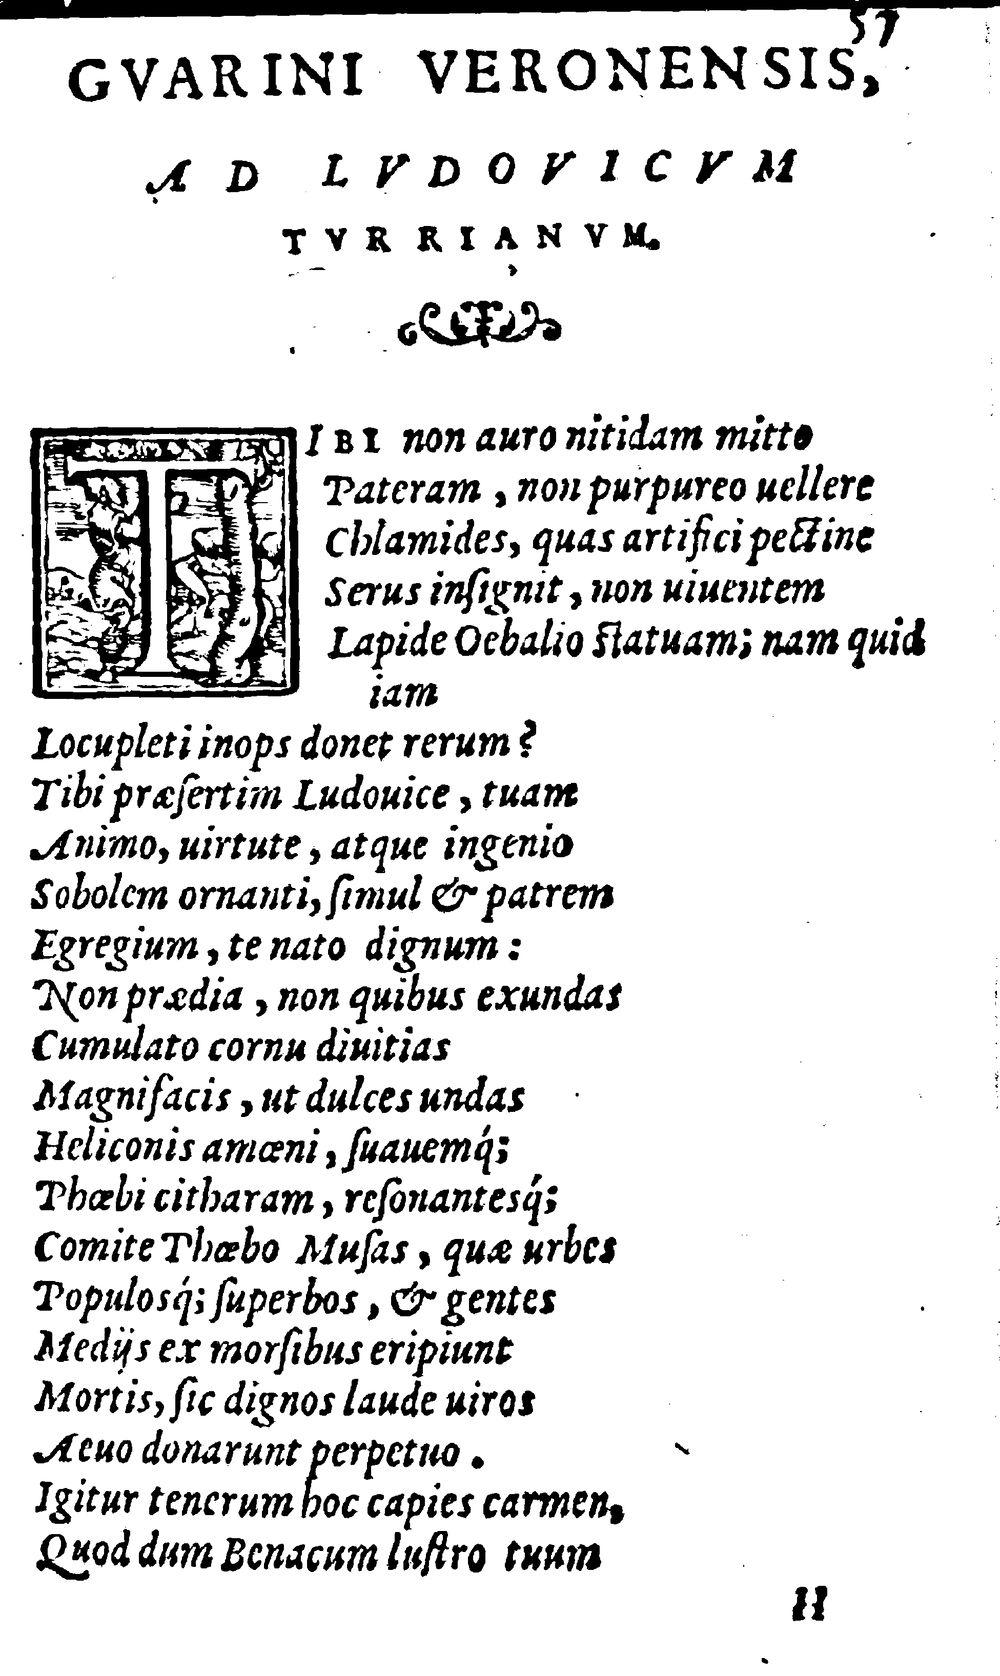 57
GVARINI VERONENSIS,
AD LVDOVICVM
TVRRIANVM.
TIBI non auro nitidam mitto
Pateram, non purpureo uellere
Chlamides, quas artifici pectine
Serus inſignit, non uiuentem
Lapide Oebalio ſtatuam; nam quid
iam
Locupleti inops donet rerum?
Tibi præſertim Ludouice, tuam
Animo, uirtute, atque ingenio
Sobolem ornanti, ſimul & patrem
Egregium, te nato dignum:
Non prædia, non quibus exundas
Cumulato cornu diuitias
Magnifacis, ut dulces undas
Heliconis amœni, ſuauemq́;
Phœbi citharam, reſonantesq́;
Comite Phœbo Muſas, quæ urbes
Populosq́; ſuperbos, & gentes
Medijs ex morſibus eripiunt
Mortis, ſic dignos laude uiros
Aeuo donarunt perpetuo.
Igitur tenerum hoc capies carmen,
Quod dum Benacum luſtro tuum
H